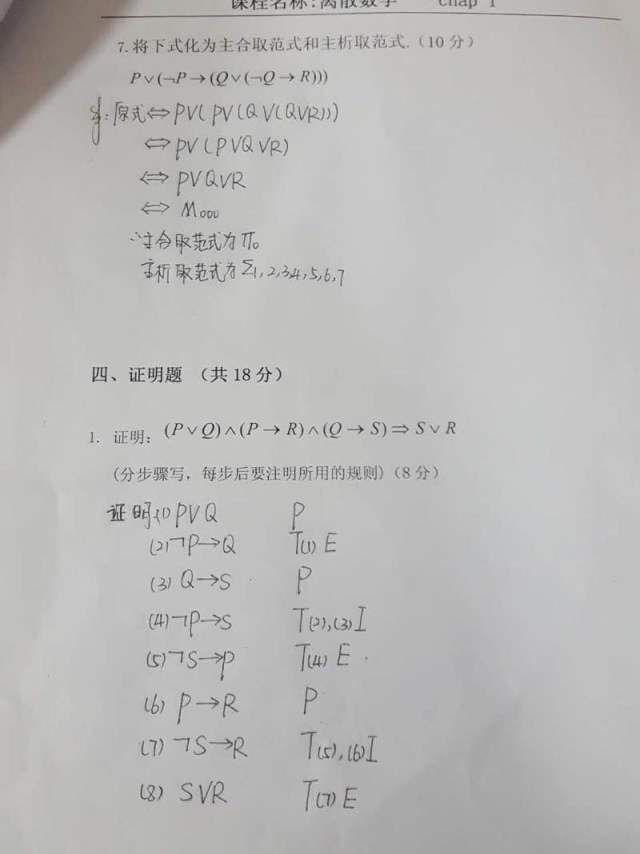 课程名称:离散数学 chap 1
7.将下式化为主合取范式和主析取范式.(10分)
P∨(¬P→(Q∨(¬Q→R)))
解:原式⇔P∨(P∨(Q∨(Q∨R)))
⇔P∨(P∨Q∨R)
⇔P∨Q∨R
⇔M₀₀₀
∴主合取范式为 π₀
主析取范式为Σ1,2,3,4,5,6,7
四、证明题 (共18分)
1. 证明: (P∨Q)∧(P→R)∧(Q→S)⇒S∨R
(分步骤写,每步后要注明所用的规则)(8分)
证明:(1) P∨Q P
(2)¬P→Q T(1)E
(3) Q→S P
(4)¬P→S T(2),(3)I
(5)¬S→P T(4)E
(6) P→R P
(7)¬S→R T(5),(6)I
(8) S∨R T(7)E